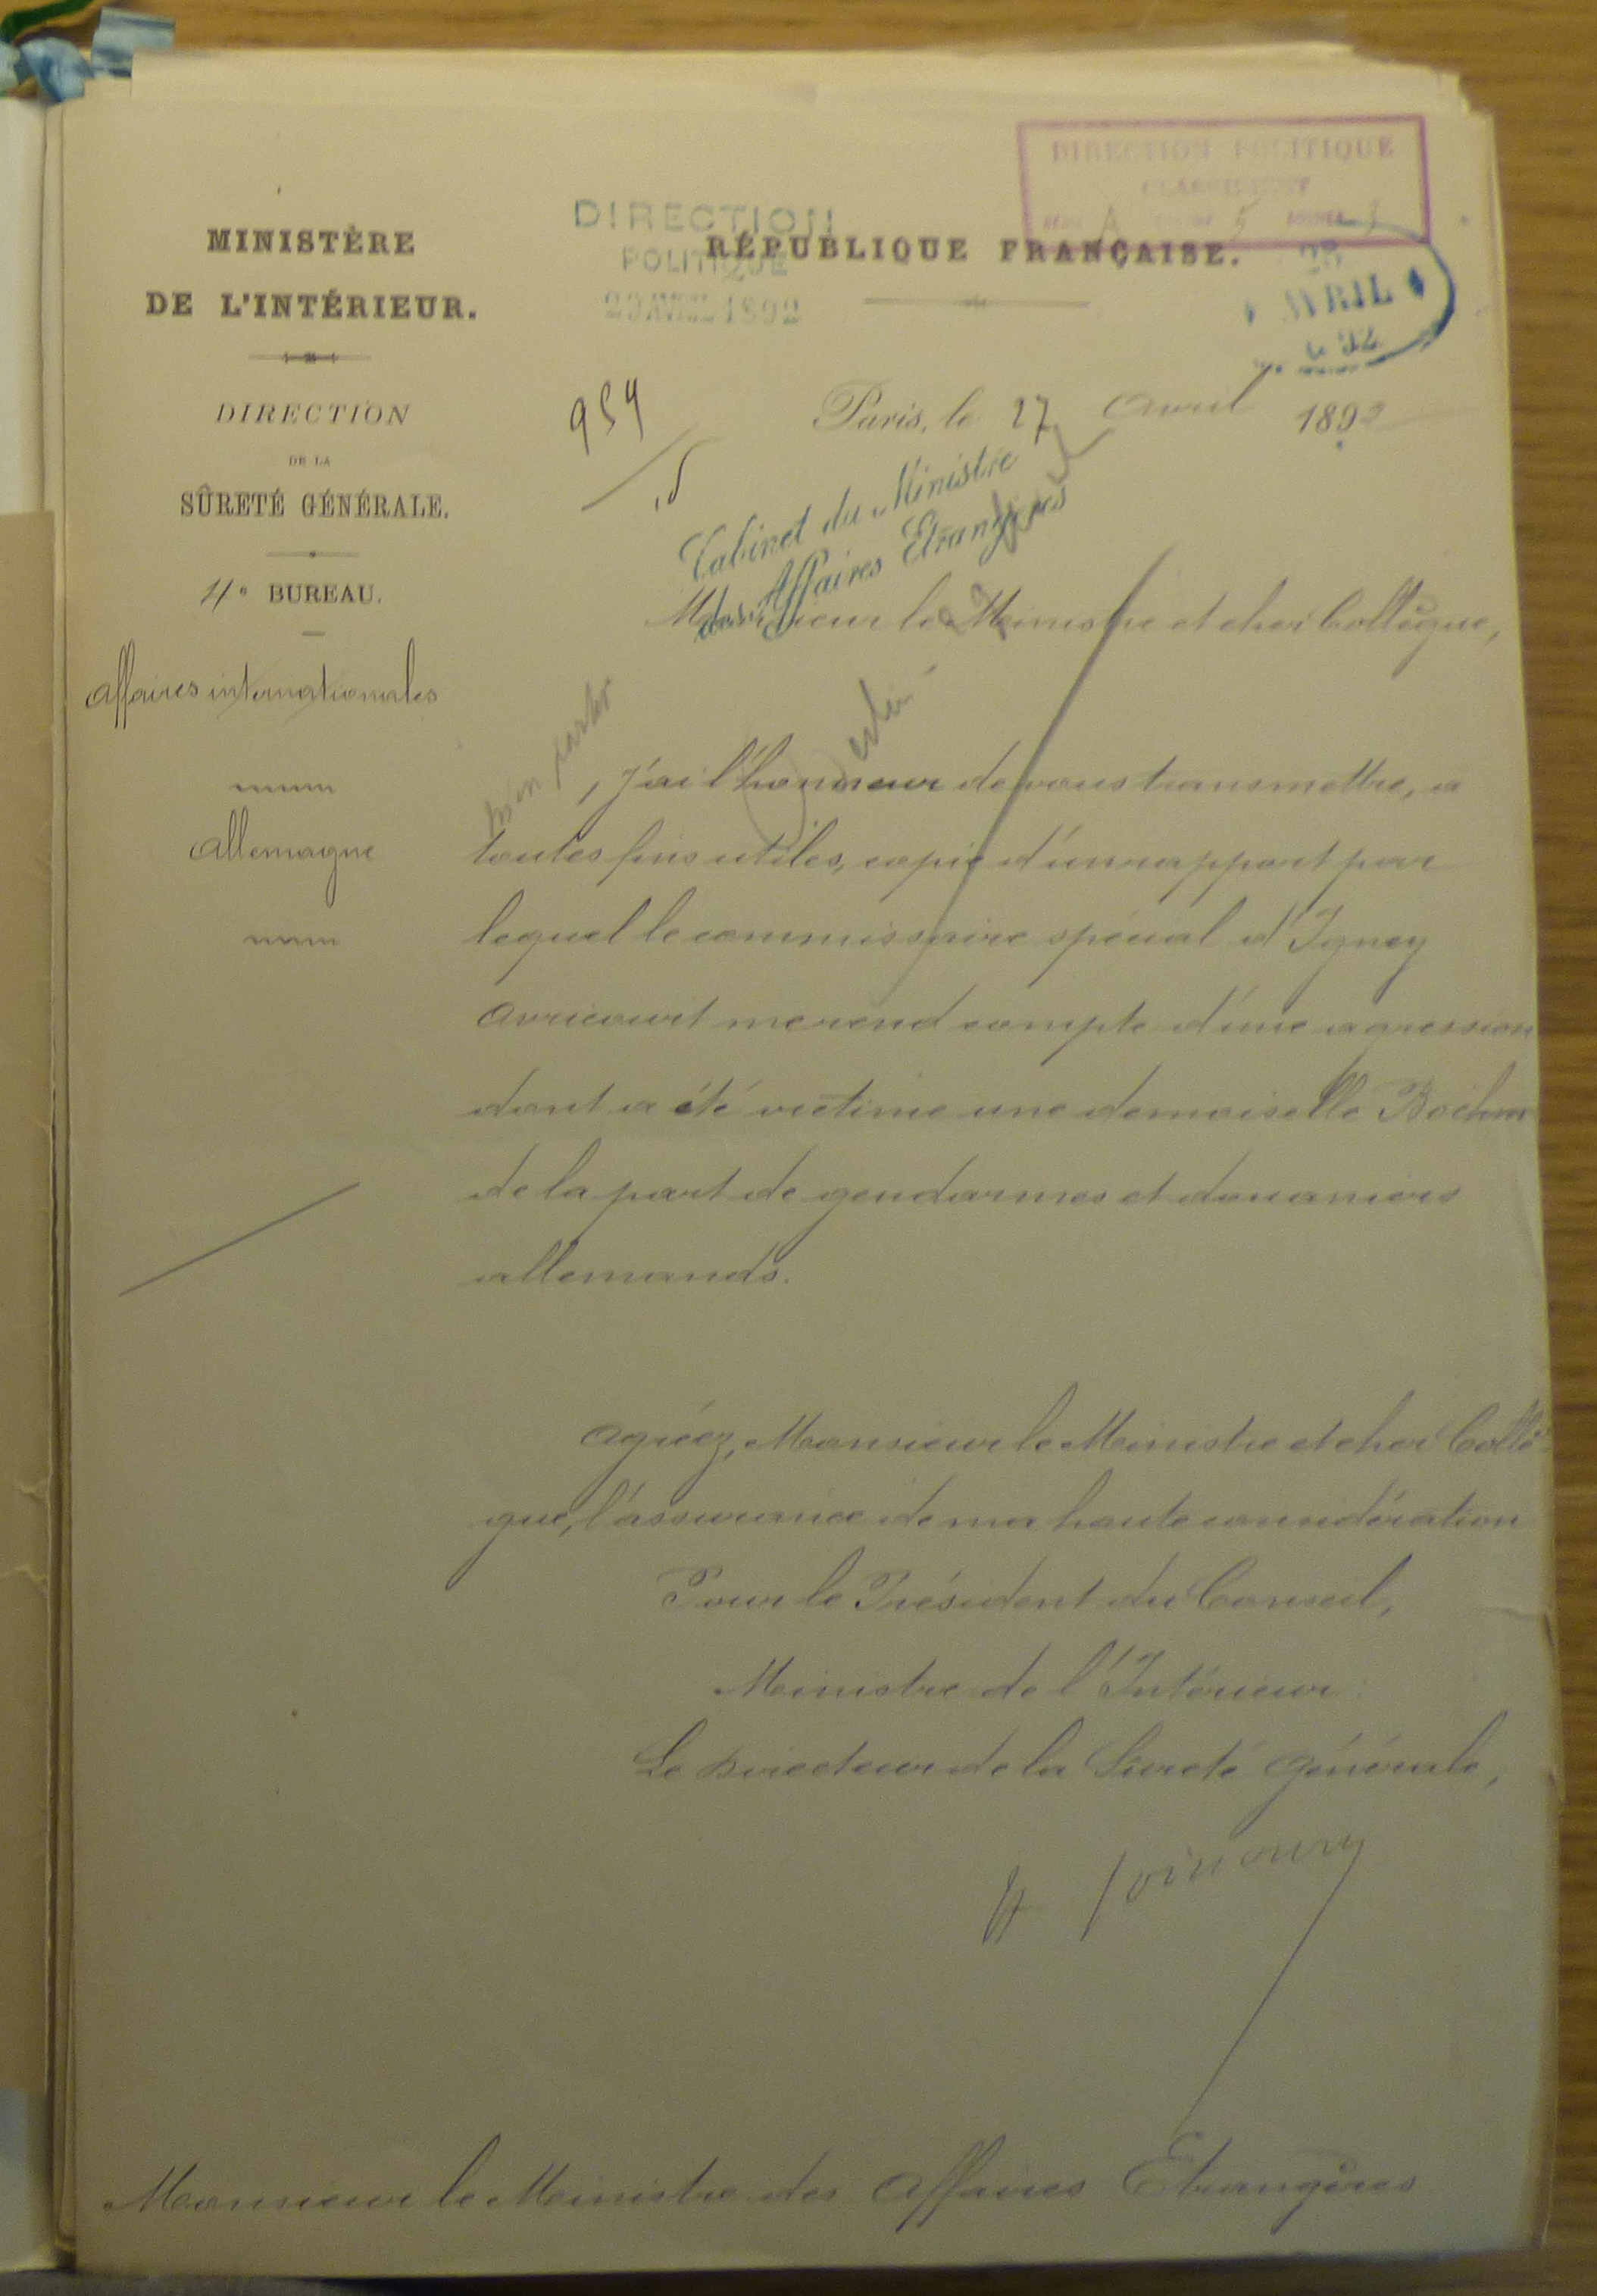 MINISTÈRE
DE L'INTÉRIEUR.
DIRECTION
DE LA
SÛRETÉ GÉNÉRALE.
4e BUREAU.
Affaires internationales
Allemagne
DIRECTION
POLITIQUE
29 AVRIL 1892
RÉPUBLIQUE FRANÇAISE.
DIRECTION POLITIQUE
CLASSEMENT
A 5 3
28
AVRIL
92
959
Paris, le 27 Avril 1892
Cabinet du Ministre
des Affaires Etrangères
Monsieur le Ministre et cher Collègue,
m'en parler
J'ai l'honneur de vous transmettre, a
toutes fins utiles, copie d'un rapport par
lequel le commissaire spécial d'Igney
Avricourt me rend compte d'une agression
dont a été victime une demoiselle Boehm
de la part de gendarmes et douaniers
allemands.
Agréez, Monsieur le Ministre et cher Collè-
gue, l'assurance de ma haute considération
Pour le Président du Conseil,
Ministre de l'Intérieur:
Le Directeur de la Sûreté Générale,
Monsieur le Ministre des Affaires Etrangères